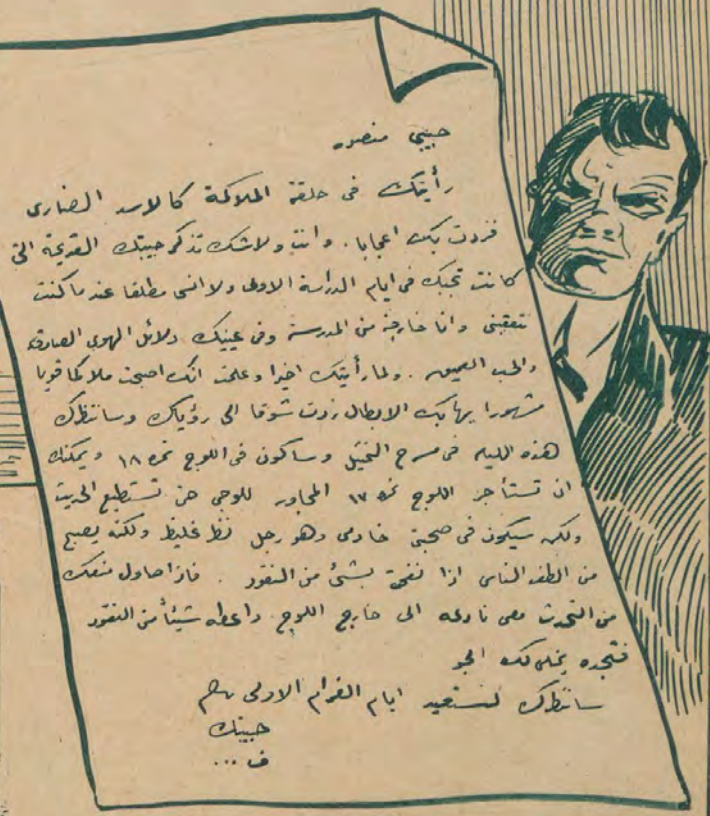 حبيبى منصور
رأيتك فى حلقة الملاكمة كالاسد الضارى
فزدت بك اعجابا . وانت ولاشك تذكر حبيبتك القديمة التى
كانت تحبك فى ايام الدراسة الاولى ولا انسى مطلقا عندما كنت
تتعقبنى وانا خارجة من المدرسة وفى عينيك دلائل الهوى الصادق
والحب العميق . ولما رأيتك اخيرا وعلمت انك اصبحت ملاكما قويا
مشهورا يهابك الابطال زدت شوقا الى رؤياك وسانتظرك
هذه الليله فى مسرح التمثيل وساكون فى اللوج نمرة ١٨ ويمكنك
ان تستأجر اللوج نمرة ١٧ المجاور للوجى حتى تستطيع الحديث
ولكن سيكون فى صحبتى خادمى وهو رجل فظ غليظ ولكنه يصبح
من الطف الناس اذا نفحته بشئ من النقود . فاذا حاول منعك
من التحدث معى نادعه الى خارج اللوج . واعطه شيئا من النقود
فتجده يخلى لك الجو
سانتظرك لنستعيد ايام الغرام الاولى
حبيبتك
ف ...